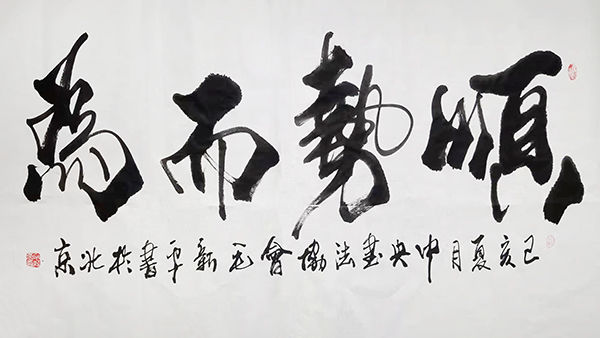 順勢而為
己亥夏月中央書法協會毛新平書於北京